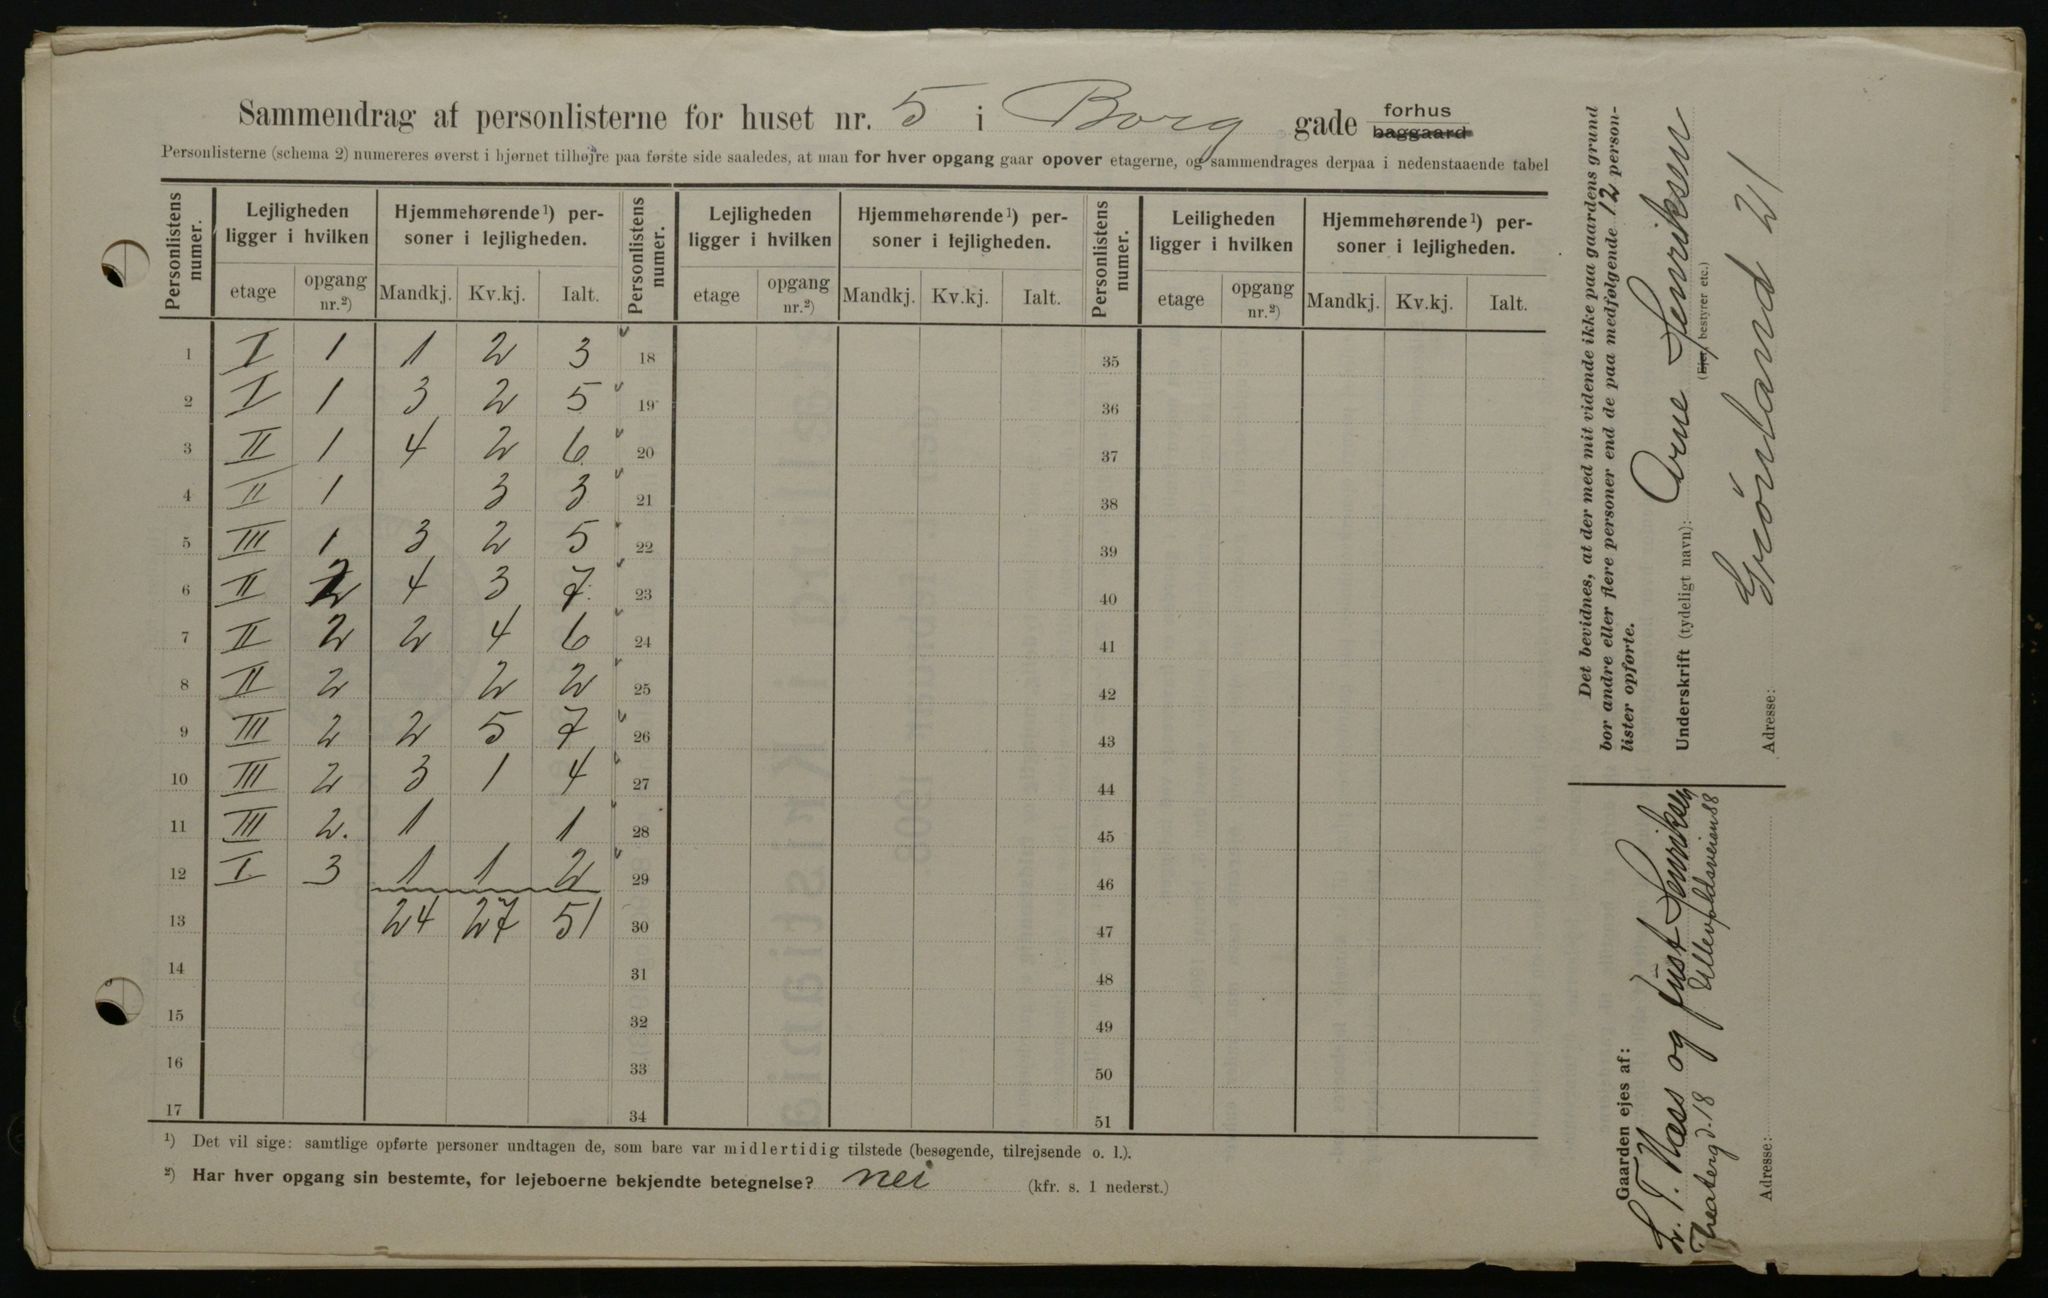 Sammendrag af personlisterne for huset nr. 5 i Borg gade forhus baggaard
Personlisterne (schema 2) numereres øverst i hjørnet tilhøjre paa første side saaledes, at man for hver opgang gaar opover etagerne, og sammendrages derpaa i nedenstaaende tabel
Personlistens numer. Lejligheden ligger i hvilken Hjemmehørende¹) personer i lejligheden. Personlistens numer. Lejligheden ligger i hvilken Hjemmehørende¹) personer i lejligheden. Personlistens numer. Leiligheden ligger i hvilken Hjemmehørende¹) personer i lejligheden.
etage opgang nr.²) Mandkj. Kv.kj. Ialt. etage opgang nr.²) Mandkj. Kv.kj. Ialt. etage opgang nr.²) Mandkj. Kv.kj. Ialt.
1 I 1 1 2 3 18 35
2 I 1 3 2 5 19 36
3 II 1 4 2 6 20 37
4 II 1 3 3 21 38
5 III 1 3 2 5 22 39
6 II 2 4 3 7 23 40
7 II 2 2 4 6 24 41
8 II 2 2 2 25 42
9 III 2 2 5 7 26 43
10 III 2 3 1 4 27 44
11 III 2. 1 1 28 45
12 I 3 1 1 2 29 46
13 24 27 51 30 47
14 31 48
15 32 49
16 33 50
17 34 51
¹) Det vil sige: samtlige opførte personer undtagen de, som bare var midlertidig tilstede (besøgende, tilrejsende o. l.).
²) Har hver opgang sin bestemte, for lejeboerne bekjendte betegnelse? nei (kfr. s. 1 nederst.)
Det bevidnes, at der med mit vidende ikke paa gaardens grund
bor andre eller flere personer end de paa medfølgende 12 person-
lister opførte.
Underskrift (tydeligt navn): Arne Henriksen
(Ejer, bestyrer etc.)
Adresse: Grönland 21
Gaarden ejes af:
L. T. Næss og Just Henriksen
Theaterg d. 18 Ullevoldsveien 88
Adresse: